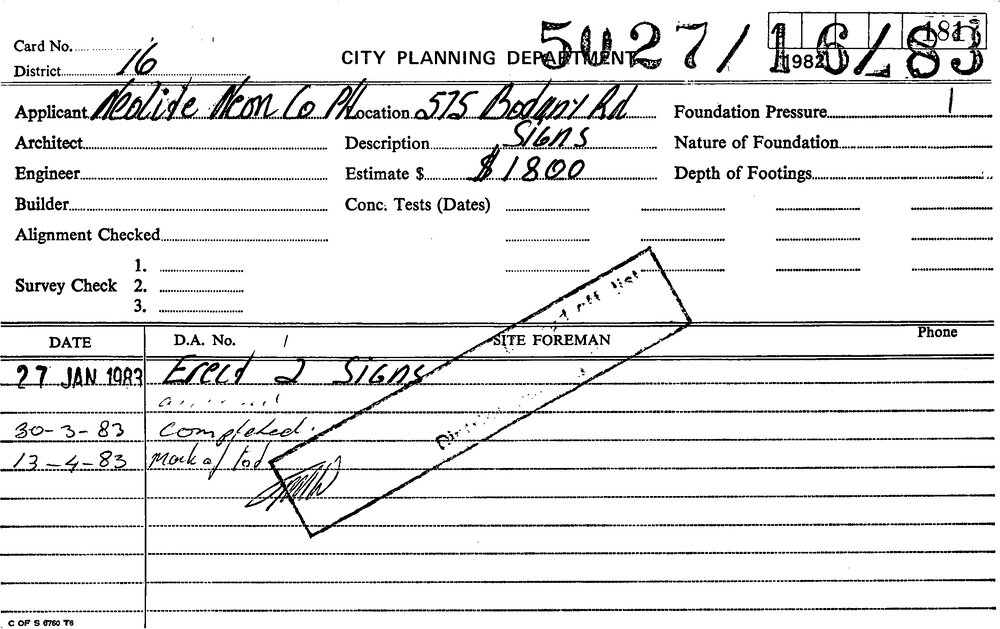 Card No.
5027/16/83
1982
District 16
CITY PLANNING DEPARTMENT
Applicant Neolite Neon Co P/L Location 575 Botany Rd Foundation Pressure
Architect Description Signs Nature of Foundation
Engineer Estimate $ $1800 Depth of Footings
Builder Conc. Tests (Dates)
Alignment Checked
1.
Survey Check 2.
3.
DATE D.A. No. SITE FOREMAN Phone
27 JAN 1983 Erect 2 Signs
30-3-83 Completed.
13-4-83
C OF S 6760 T6